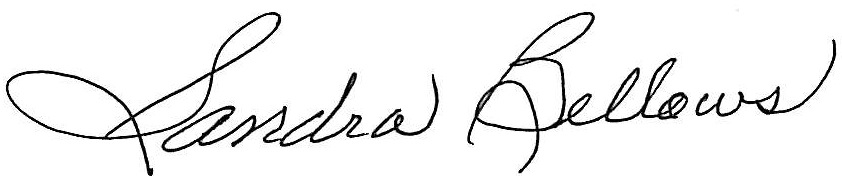 Sandra Bellows